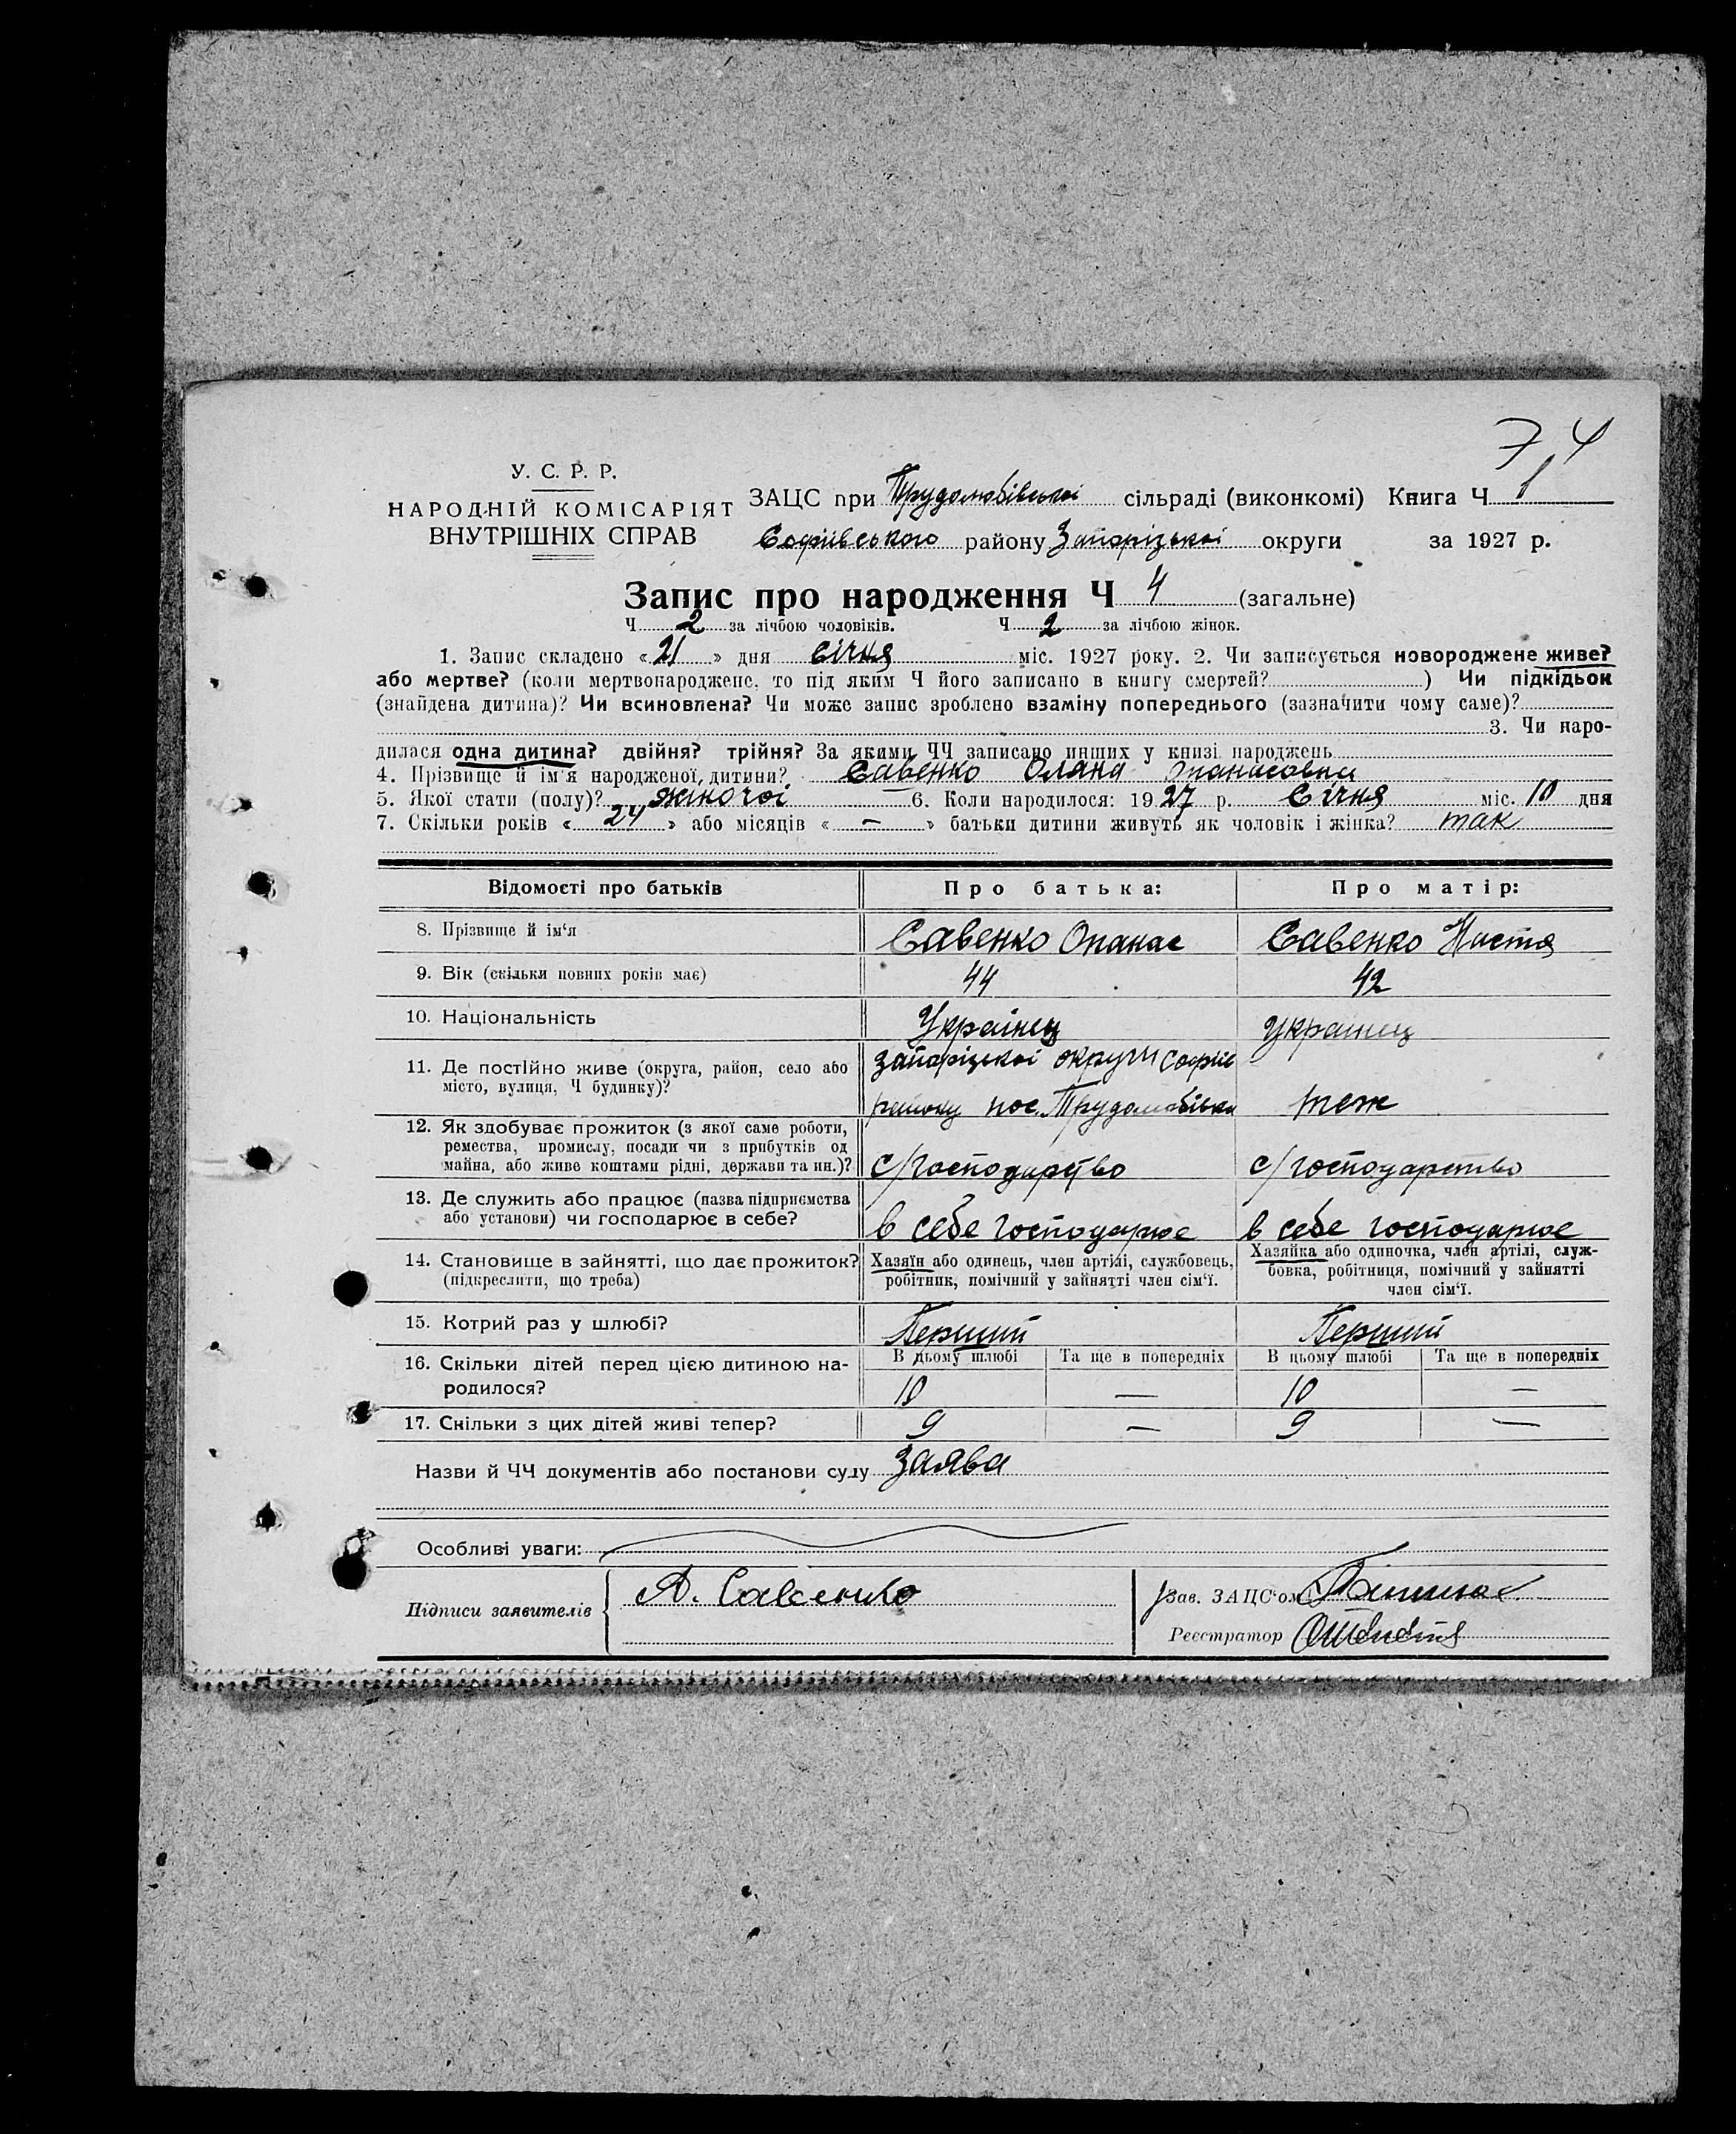 7 4
У. С. Р. Р.
НАРОДНІЙ КОМІСАРІЯТ
ВНУТРІШНІХ СПРАВ
ЗАЦС при Трудолюбівській сільраді (виконкомі) Книга Ч 1
Софіївського району Запорізької округи за 1927 р.
Запис про народження Ч 4 (загальне)
Ч 2 за лічбою чоловіків. Ч 2 за лічбою жінок.
1. Запис складено «21» дня Січня міс. 1927 року. 2. Чи записується новороджене живе?
або мертве? (коли мертвонароджене, то під яким Ч його записано в книгу смертей? ) Чи підкідьок
(знайдена дитина)? Чи всиновлена? Чи може запис зроблено взаміну попереднього (зазначити чому саме)?
3. Чи наро-
дилася одна дитина? двійня? трійня? За якими ЧЧ записано инших у книзі народжень
4. Прізвище й ім'я народженої дитини? Савенко Оляна Опанасовна
5. Якої стати (полу)? жіночої 6. Коли народилося: 1927 р. Січня міс. 10 дня
7. Скільки років «24» або місяців «—» батьки дитини живуть як чоловік і жінка? так
Відомості про батьків Про батька: Про матір:
8. Прізвище й ім'я Савенко Опанас Савенко Настя
9. Вік (скільки повних років має) 44 42
10. Національність Українец українец
11. Де постійно живе (округа, район, село або
місто, вулиця, Ч будинку)?
запорізької округи Софіїв
району пос. Трудолюбівка теж
12. Як здобуває прожиток (з якої саме роботи,
ремества, промислу, посади чи з прибутків од
майна, або живе коштами рідні, держави та ин.)?
с/господарство с/господарство
13. Де служить або працює (назва підприємства
або установи) чи господарює в себе?
в себе господарює в себе господарює
14. Становище в зайнятті, що дає прожиток?
(підкреслити, що треба)
Хазяїн або одинець, член артілі, службовець,
робітник, помічний у зайнятті член сім'ї.
Хазяйка або одиночка, член артілі, служ-
бовка, робітниця, помічний у зайнятті
член сім'ї.
15. Котрий раз у шлюбі? Перший Перший
16. Скільки дітей перед цією дитиною на-
родилося?
В цьому шлюбі Та ще в попередніх В цьому шлюбі Та ще в попередніх
10 — 10 —
17. Скільки з цих дітей живі тепер? 9 — 9 —
Назви й ЧЧ документів або постанови суду заява
Особливі уваги:
Підписи заявителів А. Савенко
Зав. ЗАЦС'ом
Реєстратор